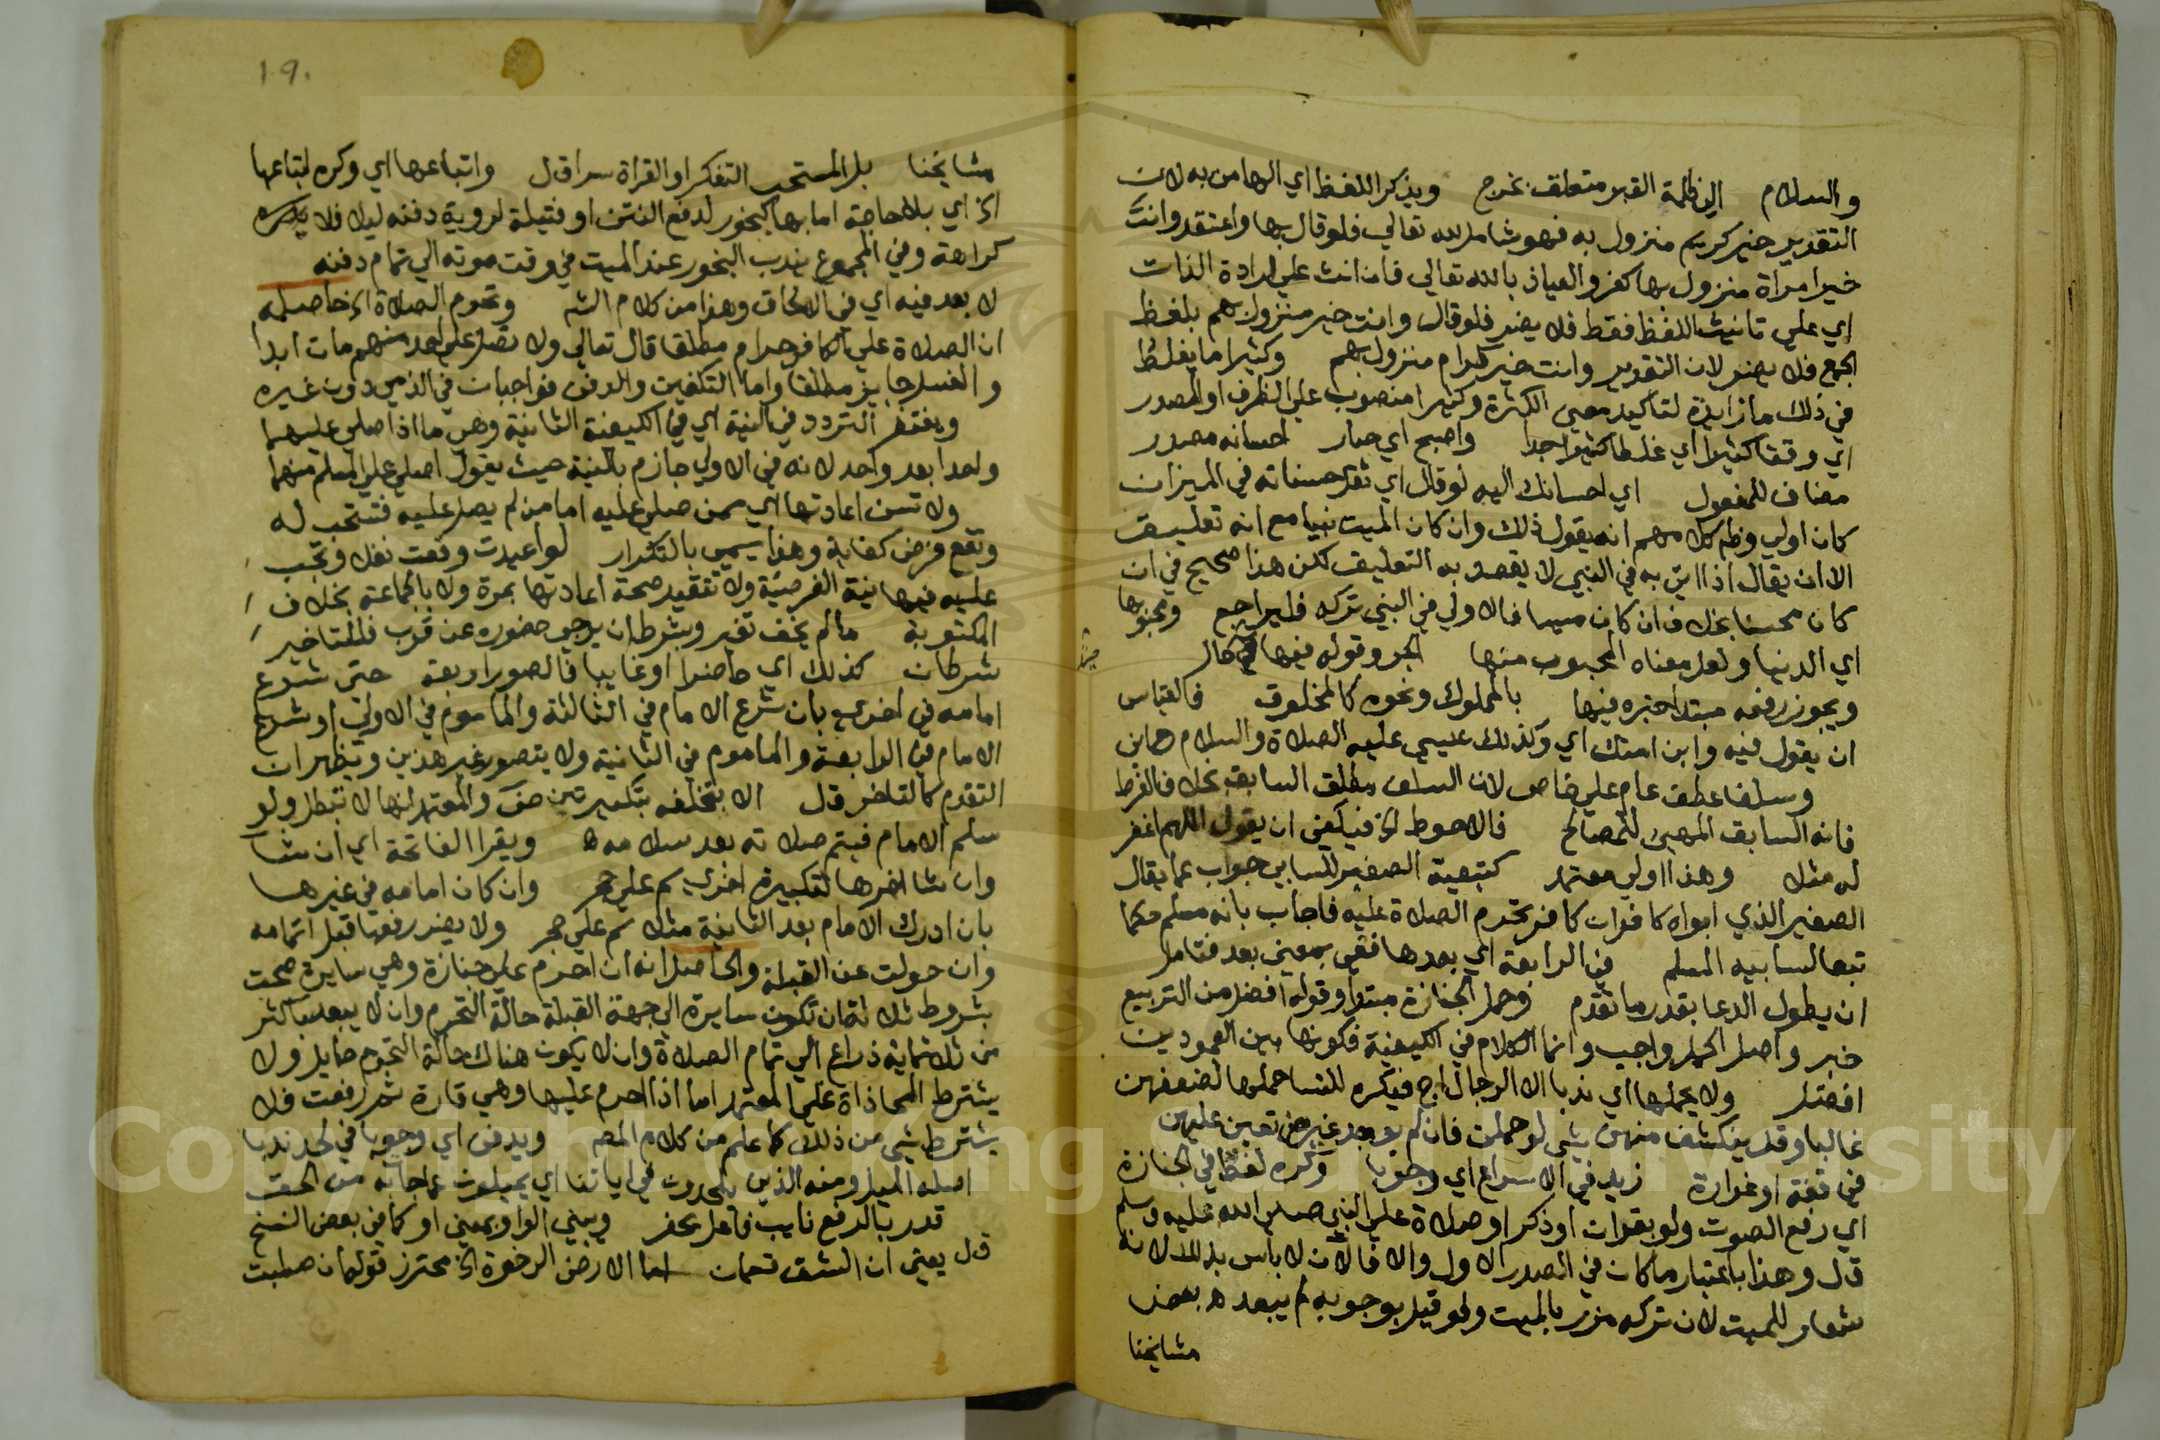 والسلام الي ظلمة القبر متعلق بخرج ويذكر اللفظ اي الها من به لان
التقدير خير كريم منزول به فهو شامل لله تعالي فلو قال بها واعتقد وانت
خير امراة منزول بها كفر والعياذ بالله تعالي فان انث علي ارادة الذات
اي علي تانيث اللفظ فقط فلا يضر فلو قال وانت خير منزول بهم بلفظ
الجمع فلا يضر لان التقدير وانت خير كرام منزول بهم وكثيرا ما يغلط
في ذلك ما زايدة لتاكيد معني الكثرة وكثيرا منصوب علي الظرف او المصدر
اي وقتا كثيرا اي غلطا كثيرا جدا واصبح اي صار احسانه مصدر
مضاف للمفعول اي احسانك اليه لو قال اي ثقل حسناته في الميزان
كان اولي وظ كلامهم انه يقول ذلك وان كان الميت نبيا مع انه تعليق
الا ان يقال اذا اتي به في النبي لا يقصد به التعليق لكن هذا صحيح في ان
كان محسنا بخلاف ان كان مسيا فالاولي في النبي تركه فليراجع ومحبوبها
اي الدنيا ولعل معناه المحبوب منها الجر وقوله فيها في حال
ويجوز رفعه مبتدا خبره فيها بالمملوك ونحوه كالمخلوق فالقياس
ان يقول فيه وابن امتك اي وكذلك عيسي عليه الصلاة والسلام
وسلفا عطف عام علي خاص لان السلف مطلق السابق بخلاف الفرط
فانه السابق المهيئ للمصالح فالاحوط الخ فيكفي ان يقول اللهم اغفر
له مثلا وهذا اولي معتمد كتبعية الصغير للسابي جواب عما يقال
الصغير الذي ابواه كافران كافر تحرم الصلاة عليه فاجاب بانه مسلم حكما
تبعا لسابيه المسلم في الرابعة اي بعدها ففي بمعني بعد فتامل
ان يطول الدعا بقدر ما تقدم وحمل الجنازة مبتدا وقوله افضل من التربيع
خبر واصل الحمل واجب وانما الكلام في الكيفية فكونها بين العمودين
افضل ولا يحملها اي ندبا الا الرجال الخ فيكره للنسا حملها لضعفهن
غالبا وقد ينكشف منهن شي لو حملن فان لم يوجد غيرهن تعين عليهن
في قفة او غرارة زيد في الاسراع اي وجوبا وكره لغط في الجنازة
اي رفع الصوت ولو بقران او ذكر او صلاة علي النبي صلي الله عليه وسلم
قال وهذا باعتبار ما كان في الصدر الاول والا فالآن لا باس بذلك لانه
شعار للميت لان تركه مزر بالميت ولو قيل بوجوبه لم يبعد ه بعض
مشايخنا
١٩٠
مشايخنا بل المستحب التفكر او القراة سرا ق ل واتباعها اي وكره اتباعها
الخ اي بلا حاجة اما بها كبخور لدفع النتن او فتيلة لروية دفنه ليلا فلا يكره
كراهة وفي المجموع يندب البخور عند الميت في وقت موته الي تمام دفنه
لا بعد فيه اي في الالحاق وهذا من كلام الش وتحرم الصلاة الخ حاصله
ان الصلاة علي الكافر حرام مطلقا قال تعالي ولا تصل علي احد منهم مات ابدا
والغسل جايز مطلقا واما التكفين والدفن فواجبان في الذمي دون غيره
ويغتفر التردد في النية اي في الكيفية الثانية وهي ما اذا صلي عليهما
واحدا بعد واحد لانه في الاولي جازم بالنية حيث يقول اصلي علي المسلم منهما
ولا تسن اعادتها اي ممن صلي عليه اما من لم يصل عليه فتستحب له
وتقع فرض كفاية وهذا يسمي بالتكرار لو اعيدت وقعت نفلا وتجب
عليه فيها نية الفرضية ولا تتقيد صحة اعادتها بمرة ولا بالجماعة بخلاف
المكتوبة ما لم يخف تغير وبشرط ان يرجي حضوره عن قرب فللتاخير
شرطان كذلك اي حاضرا او غايبا فالصور اربعة حتي شرع
امامه في اخري بان شرع الامام في الثالثة والماموم في الاولي او شرع
الامام في الرابعة والماموم في الثانية ولا يتصور غير هذين ويظهر ان
التقدم كالتاخر ق ل الا بتخلفه بتكبيرتين ضعف والمعتمد انها لا تبطل ولو
سلم الامام فيتم صلاته بعد سلامه ويقرا الفاتحة اي ان شا
وان شا اخرها لتكبيرة اخري سم علي حجر وان كان امامه في غيرها
بان ادرك الامام بعد الثانية مثلا سم علي حجر ولا يضر رفعها قبل اتمامه
وان حولت عن القبلة والحاصل انه ان احرم علي جنازة وهي سايرة صحت
بشروط ثلاثة ان تكون سايرة الي جهة القبلة حالة التحرم وان لا يبعد باكثر
من ثلاثماية ذراع الي تمام الصلاة وان لا يكون هناك حالة التحرم حايل ولا
يشترط المحاذاة علي المعتمد اما اذا احرم عليها وهي قارة ثم رفعت فلا
يشترط شي من ذلك كما علم من كلام المص ويدفن اي وجوبا في لحد ندبا
اصله الميل ومنه الذين يلحدون في اياتنا اي يميلون عما جاته من الحق
قدر بالرفع نايب فاعل يحفر ويبني الواو بمعني او كما في بعض النسخ
ق ل يعني ان الشق قسمان اما الارض الرخوة الخ محترز قوله ان صلبت